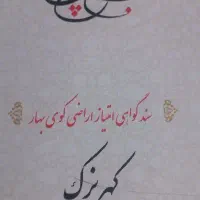 سند گواهی امتیاز اراضی کوی بهار
کهریزک